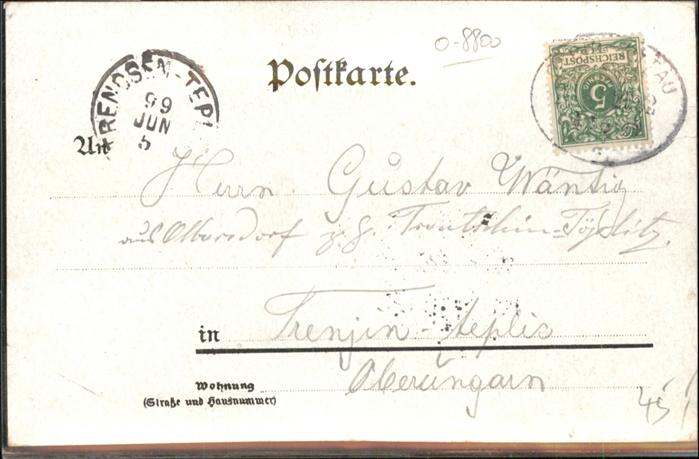 0-8800
Postkarte.
RENCSSÉN-TEPL
99
JUN
5
REICHSPOST
5
TAU
An
Herrn Gustav Wäntig
aus Olbersdorf z. Z. Trentschin-Töplitz,
in Trenjin-teplic
Oberungarn
Wohnung
(Straße und Hausnummer)
45